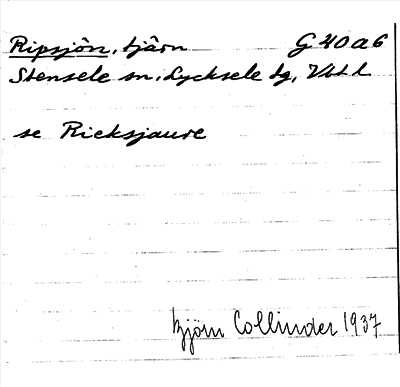 Ripsjön, tjärn G 40 a 6
Stensele sn, Lycksele lg, Vbtl
se Rieksjaure
Björn Collinder 1937